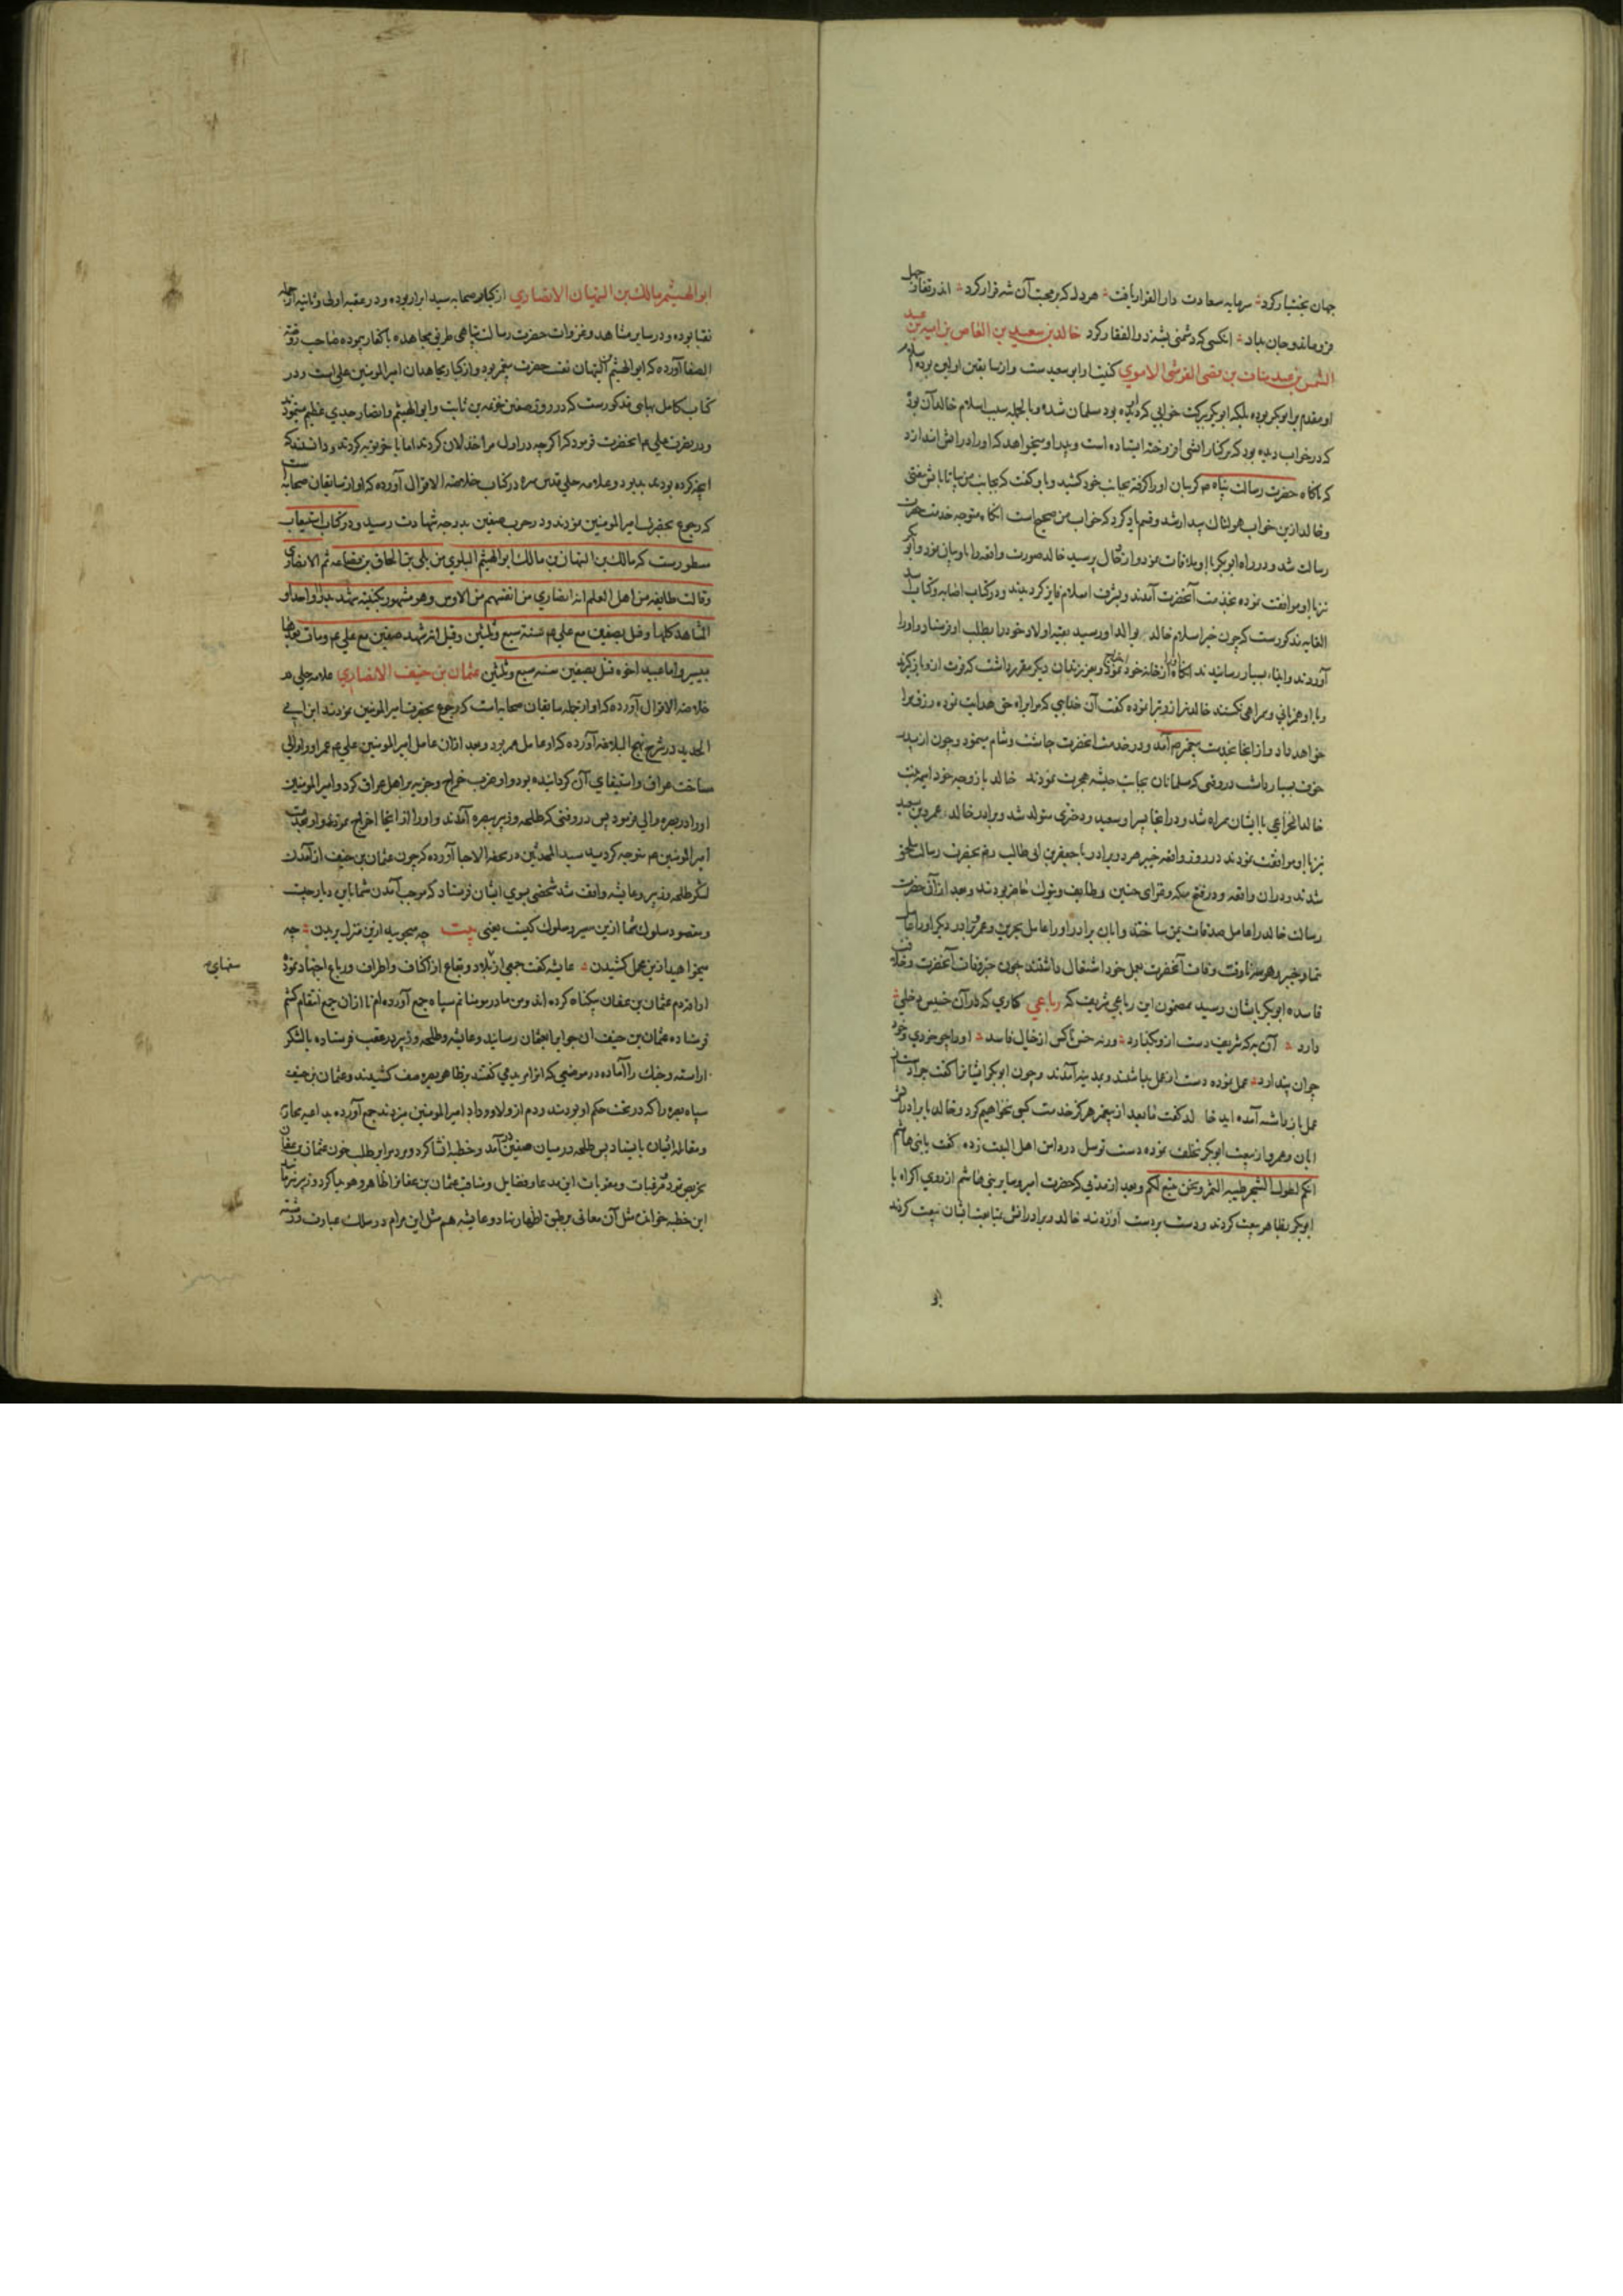 جهان بخشیار کرد سرمایه سعادت دار القرار یافت هر دل که بر محبت آن شه قرار کرد
فرو ماند و جان بداد انکس که دشمنی بشه ذو الفقار کرد خالد بن سعید بن العاص بن امیه بن عبد
الشمس بن عبد مناف بن قصی القرشی الاموی کنیت او ابو سعیدست و از سابقین اولین بوده اسلام
او مقدم بر ابو بکر بوده بلکه ابو بکر ببرکت خوابی که دیده بود مسلمان شده و بالجمله سبب اسلام خالد آن بود
که در خواب دیده بود که بر کنار اتشی افروخته ایستاده است و پدر او میخواهد که او را در اتش اندازد
که ناکاه حضرت رسالت پناه م کریبان او را کرفته بجانب خود کشید و با و کفت که بجانب من بیا تا باتش نیفتی
و خالد ازین خواب هولناک بیدار شد و قسم یاد کرد که خواب من صحیح است انکاه متوجه خدمت حضرت
رسالت شد و در راه ابو بکر با او ملاقات نمود و از حال پرسید خالد صورت واقعه را با او بیان نمود و ابو بکر
نیز با او موافقت نموده بخدمت آنحضرت آمدند و بشرف اسلام فایز کردیدند و در کتاب اصابه و کتاب اسد
الغابه مذکورست که چون خبر اسلام خالد بوالد او رسید بقیه اولاد خود را بطلب او فرستاد و او را
آوردند و ایذاء بسیار رسانیدند انکاه از خانه خود نمود و بفرزندان دیکر مقرر داشت که قوت از و باز کیرند
و با او همزبانی و همراهی نکنند خالد کفت آن خدایی که مرا براه حق هدایت نموده رزق مرا
خواهد داد و از انجا بخدمت پیغمبر م آمد و در خدمت انحضرت چاشت و شام میبود و چون از پدر
خوف بسیار داشت در وقتی که مسلمانان بجانب حبشه هجرت نمودند خالد با زوجه خود امیمه بنت
خالد الخزاعی با ایشان همراه شد و در انجا پسر او سعید و دختری متولد شد و برادر خالد عمرو بن سعید
نیز با او موافقت نمودند و در روز واقعه خیبر هر دو برادر با جعفر بن ابی طالب رض بحضرت رسالت ملحق
شدند و در ان واقعه و در فتح مکه و غزای حنین و طایف و تبوک حاضر بودند و بعد از آن حضرت
رسالت خالد را عامل صدقات یمن ساختند و ابان برادر او را عامل بحرین و عمرو برادر دیکر او را عامل
تیما و خیبر و همیشه تا وقت وفات آنحضرت بعمل خود اشتغال داشتند چون خبر وفات آنحضرت و خلافت
فاسده ابو بکر بایشان رسید بمضمون این رباعی شریف که رباعی کاری که در آن خسیس دخلی
دارد آن به که شریف دست از و بکذارد ورنه خس ناکس از خیال فاسد او را چو خودی و خود
چو ان پندارد عمل نموده دست از عمل بداشتند و بمدینه آمدند و چون ابو بکر ایشانرا کفت چرا دست از
عمل باز داشته آمده اید خالد کفت ما بعد از پیغمبر هرکز خدمت کسی نخواهیم کرد و خالد با برادرش
ابان و عمرو از بیعت ابو بکر تخلف نموده دست توسل در دامن اهل البیت زده کفت یا بنی هاشم
انکم لطوال الشجر طیبه الثمر و نحن تبع لکم و بعد از مدتی که حضرت امیر و سایر بنی هاشم از روی اکراه با
ابو بکر بظاهر بیعت کردند و دست بر دست او زدند خالد و برادرانش بمتابعت ایشان بیعت کردند
ابو الهیثم مالک بن التیهان الانصاری از کبار صحابه سید ابرار بوده و در عقبه اولی و ثانیه از جمله
نقبا بوده و در سایر مشاهد و غزوات حضرت رسالت پناهی طریق مجاهده با کفار پیموده صاحب روضه
الصفا آورده که ابو الهیثم بن التیهان نقیب حضرت پیغمبر بود و از کبار مجاهدان امیر المومنین علی است و در
کتاب کامل بهایی مذکورست که در روز صفین خزیمه بن ثابت و ابو الهیثم و انصار جدی عظیم مینمودند
و در نصرت علی م انحضرت فرمود که اکرچه در اول مرا خذلان کردند اما باخر توبه کردند و دانستند که
انچه کرده بودند بد بود و علامه حلی قدس سره در کتاب خلاصة الاقوال آورده که او از سابقان صحابه است
که رجوع بحضرت امیر المومنین نمودند و در حرب صفین بدرجه شهادت رسید و در کتاب استیعاب
مسطورست که مالک بن التیهان بن مالک ابو الهیثم البلوی من بلی بن الحاف بن قضاعه ثم الانصاری
وقالت طایفه من اهل العلم انه انصاری من انفسهم من الاوس وهو مشهور بکنیته شهد بدرا واحدا و
المشاهد کلها وقتل بصفین مع علی م سنة سبع وثلثین وقیل انه شهد صفین مع علی م ومات بعدها
بیسیر واما عبید اخوه قتل بصفین سنه سبع وثلثین عثمان بن حنیف الانصاری علامه حلی در
خلاصة الاقوال آورده که او از جمله سابقان صحابه است که رجوع بحضرت امیر المومنین نمودند ابن ابی
الحدید در شرح نهج البلاغه آورده که او عامل عمر بود و بعد ازان عامل امیر المومنین علی م عمر او را والی
مساحت عراق و استیفای آن کردانیده بود و او ضرب خراج و جزیه بر اهل عراق کرد و امیر المومنین
او را در بصره والی فرمود پس در وقتی که طلحه و زبیر ببصره آمدند و او را از انجا اخراج نمودند و او بخدمت
امیر المومنین م متوجه کردید سید المحدثین در تحفة الاحبا آورده که چون عثمان بن حنیف از آمدن
لشکر طلحه و زبیر و عایشه واقف شد شخصی بسوی ایشان فرستاد که موجب آمدن شما باین دیار چیست
و مقصود سلوک شما ازین سیر و سلوک کیست یعنی بیت چه میجویید ازین منزل بریدن چه
میخواهید ازین محمل کشیدن عایشه کفت جمعی از بلاد و بقاع از اکناف و اطراف و رباع اجتهاد نموده
او اقدم عثمان بن عفان بیکناه کرده اند و من مادر مومنانم سپاه جمع آورده ام تا ازان جمع انتقام کشم
فرستاده عثمان بن حنیف ان جواب را بعثمان رسانید و عایشه و طلحه و زبیر در عقب فرستاده با لشکر
اراسته و جنک را آماده در موضعی که انرا مربد می کفتند بظاهر بصره صف کشیدند و عثمان بن حنیف
سپاه بصره را که در تحت حکم او بودند و دم از ولا و وداد امیر المومنین میزدند جمع آورده بداعیه محاربه
و مقاتله ایشان بایستاد پس طلحه در میان صفین در آمد و خطبه انشا کرد و مردم را بر طلب خون عثمان بن عفان
تحریص نمود و مرغبات و مقویات این مدعا و فضایل و مناقب عثمان بن عفان را ظاهر و هویدا کرد و زبیر نیز مانند
این خطبه خواند و مثل آن معانی بر طبق اظهار نهاد و عایشه هم مثل این مرام در سلک عبارت در رشته